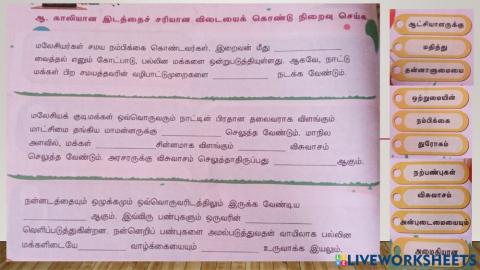 ஆ. காலியான இடத்தைச் சரியான விடையைக் கொண்டு நிறைவு செய்க
மலேசியர்கள் சமய நம்பிக்கை கொண்டவர்கள். இறைவன் மீது
வைத்தல் எனும் கோட்பாடு, பல்லின மக்களை ஒன்றுபடுத்தியுள்ளது. ஆகவே, நாட்டு
மக்கள் பிற சமயத்தவரின் வழிபாட்டுமுறைகளை நடக்க வேண்டும்.
மலேசியக் குடிமக்கள் ஒவ்வொருவரும் நாட்டின் பிரதான தலைவராக விளங்கும்
மாட்சிமை தங்கிய மாமன்னருக்கு செலுத்த வேண்டும். மாநில
அளவில், மக்கள் சின்னமாக விளங்கும் விசுவாசம்
செலுத்த வேண்டும். அரசருக்கு விசுவாசம் செலுத்தாதிருப்பது ஆகும்.
நன்னடத்தையும் ஒழுக்கமும் ஒவ்வொருவரிடத்திலும் இருக்க வேண்டிய
ஆகும். இவ்விரு பண்புகளும் ஒருவரின்
வெளிப்படுத்துகின்றன. நன்னெறிப் பண்புகளை அமல்படுத்துவதன் வாயிலாக பல்லின
மக்களிடையே வாழ்க்கையையும் உருவாக்க இயலும்.
ஆட்சியாளருக்கு
மதித்து
தன்னாளுமையை
ஒற்றுமையின்
நம்பிக்கை
துரோகம்
நற்பண்புகள்
விசுவாசம்
அன்புடைமையையும்
அமைதியான
LIVEWORKSHEETS